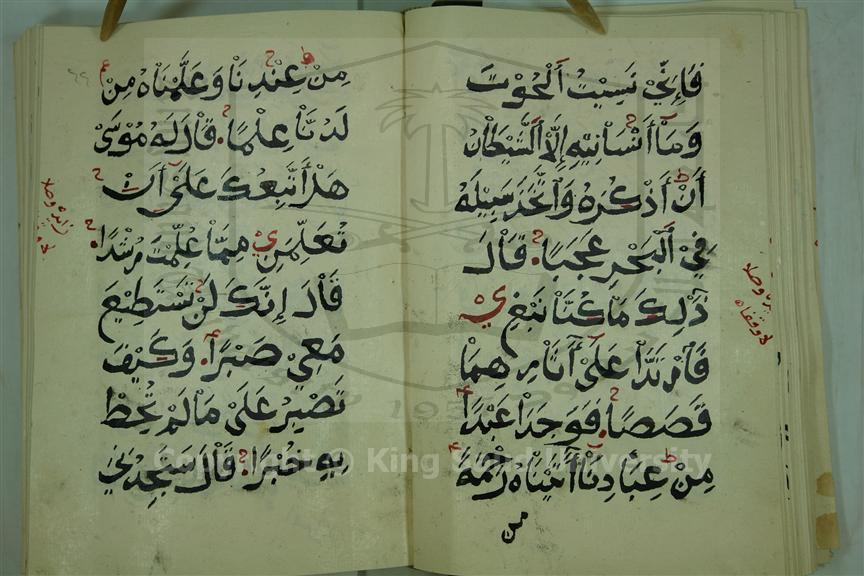 فَإِنِّيْ نَسِيْتُ اَلْحُوْتَ
وَمَآ أَنْسَانِيْهِ إِلَّا اَلشَّيْطَانُ
أَنْ أَذْكُرَهُ وَاَتَّخَذَ سَبِيْلَهُ
فِيْ اَلْبَحْرِ عَجَبًا. قَالَ
ذَلِكَ مَا كُنَّا نَبْغِيْ
فَاَرْتَدَّا عَلَىْ آثَارِهِمَا
قَصَصًا. فَوَجَدَا عَبْدًا
مِنْ عِبَادِنَآ أَتَيْنَاهُ رَحْمَةً
من
مِنْ عِنْدِنَا وَعَلَّمْنَاهُ مِنْ
لَدُنَّا عِلْمًا. قَالَ لَهُ مُوْسَىْ
هَلْ أَتَّبِعُكَ عَلَىْ أَنْ
تُعَلِّمَنِيْ مِمَّا عُلِّمْتَ رُشْدًا.
قَالَ إِنَّكَ لَنْ تَسْتَطِيْعَ
مَعِيْ صَبْرًا. وَكَيْفَ
تَصْبِرُ عَلَىْ مَا لَمْ تُحِطْ
بِهِ خُبْرًا. قَالَ سَتَجِدُنِيْ
Copyright © King Saud University